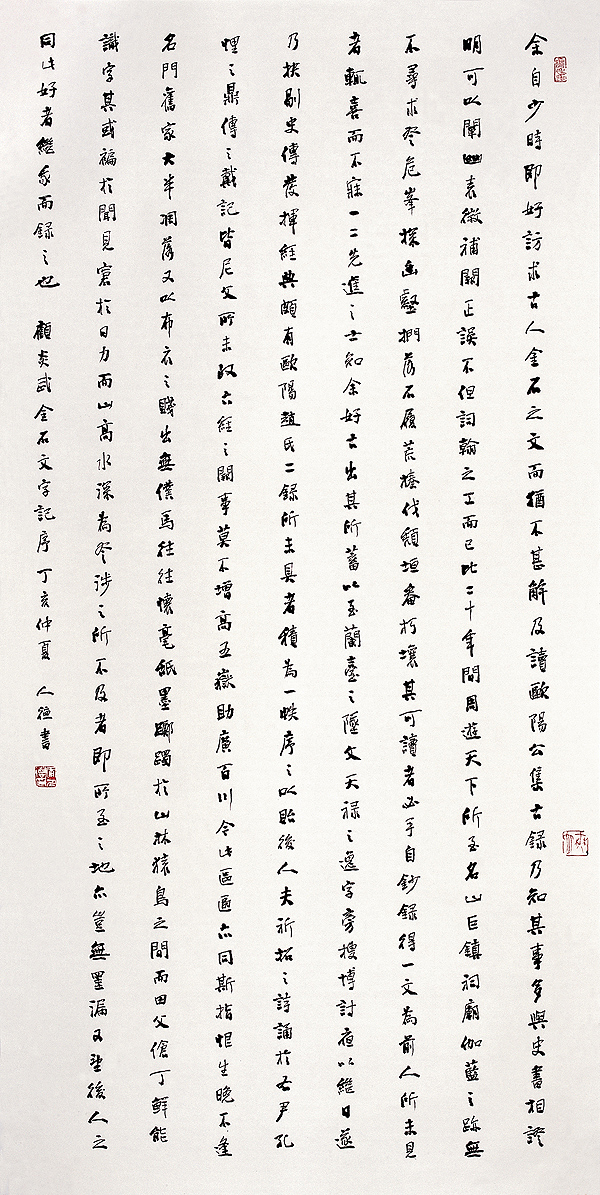 余自少時即好訪求古人金石之文而猶不甚解及讀歐陽公集古錄乃知其事多與史書相證
明可以闡幽表微補闕正誤不但詞翰之工而已比二十年間周遊天下所至名山巨鎮祠廟伽藍之跡無
不尋求登危峯探幽壑捫落石履荒榛伐頹垣畚朽壤其可讀者必手自鈔錄得一文為前人所未見
者輒喜而不寐一二先進之士知余好古出其所蓄以至蘭臺之墜文天祿之逸字旁搜博討夜以繼日遂
乃抉剔史傳發揮經典頗有歐陽趙氏二錄所未具者積為一帙序之以貽後人夫祈招之詩誦於右尹孔
悝之鼎傳之戴記皆尼父所未收六經之闕事莫不增高五嶽助廣百川今此區區亦同斯指恨生晚不逢
名門舊家大半凋落又以布衣之賤出無僕馬往往懷毫舐墨躑躅於山林猿鳥之間而田父傖丁鮮能
識字其或褊於聞見窘於日力而山高水深為登涉之所不及者即所至之地亦豈無罣漏又望後人之
同此好者繼我而錄之也 顧炎武金石文字記序 丁亥仲夏 人 書